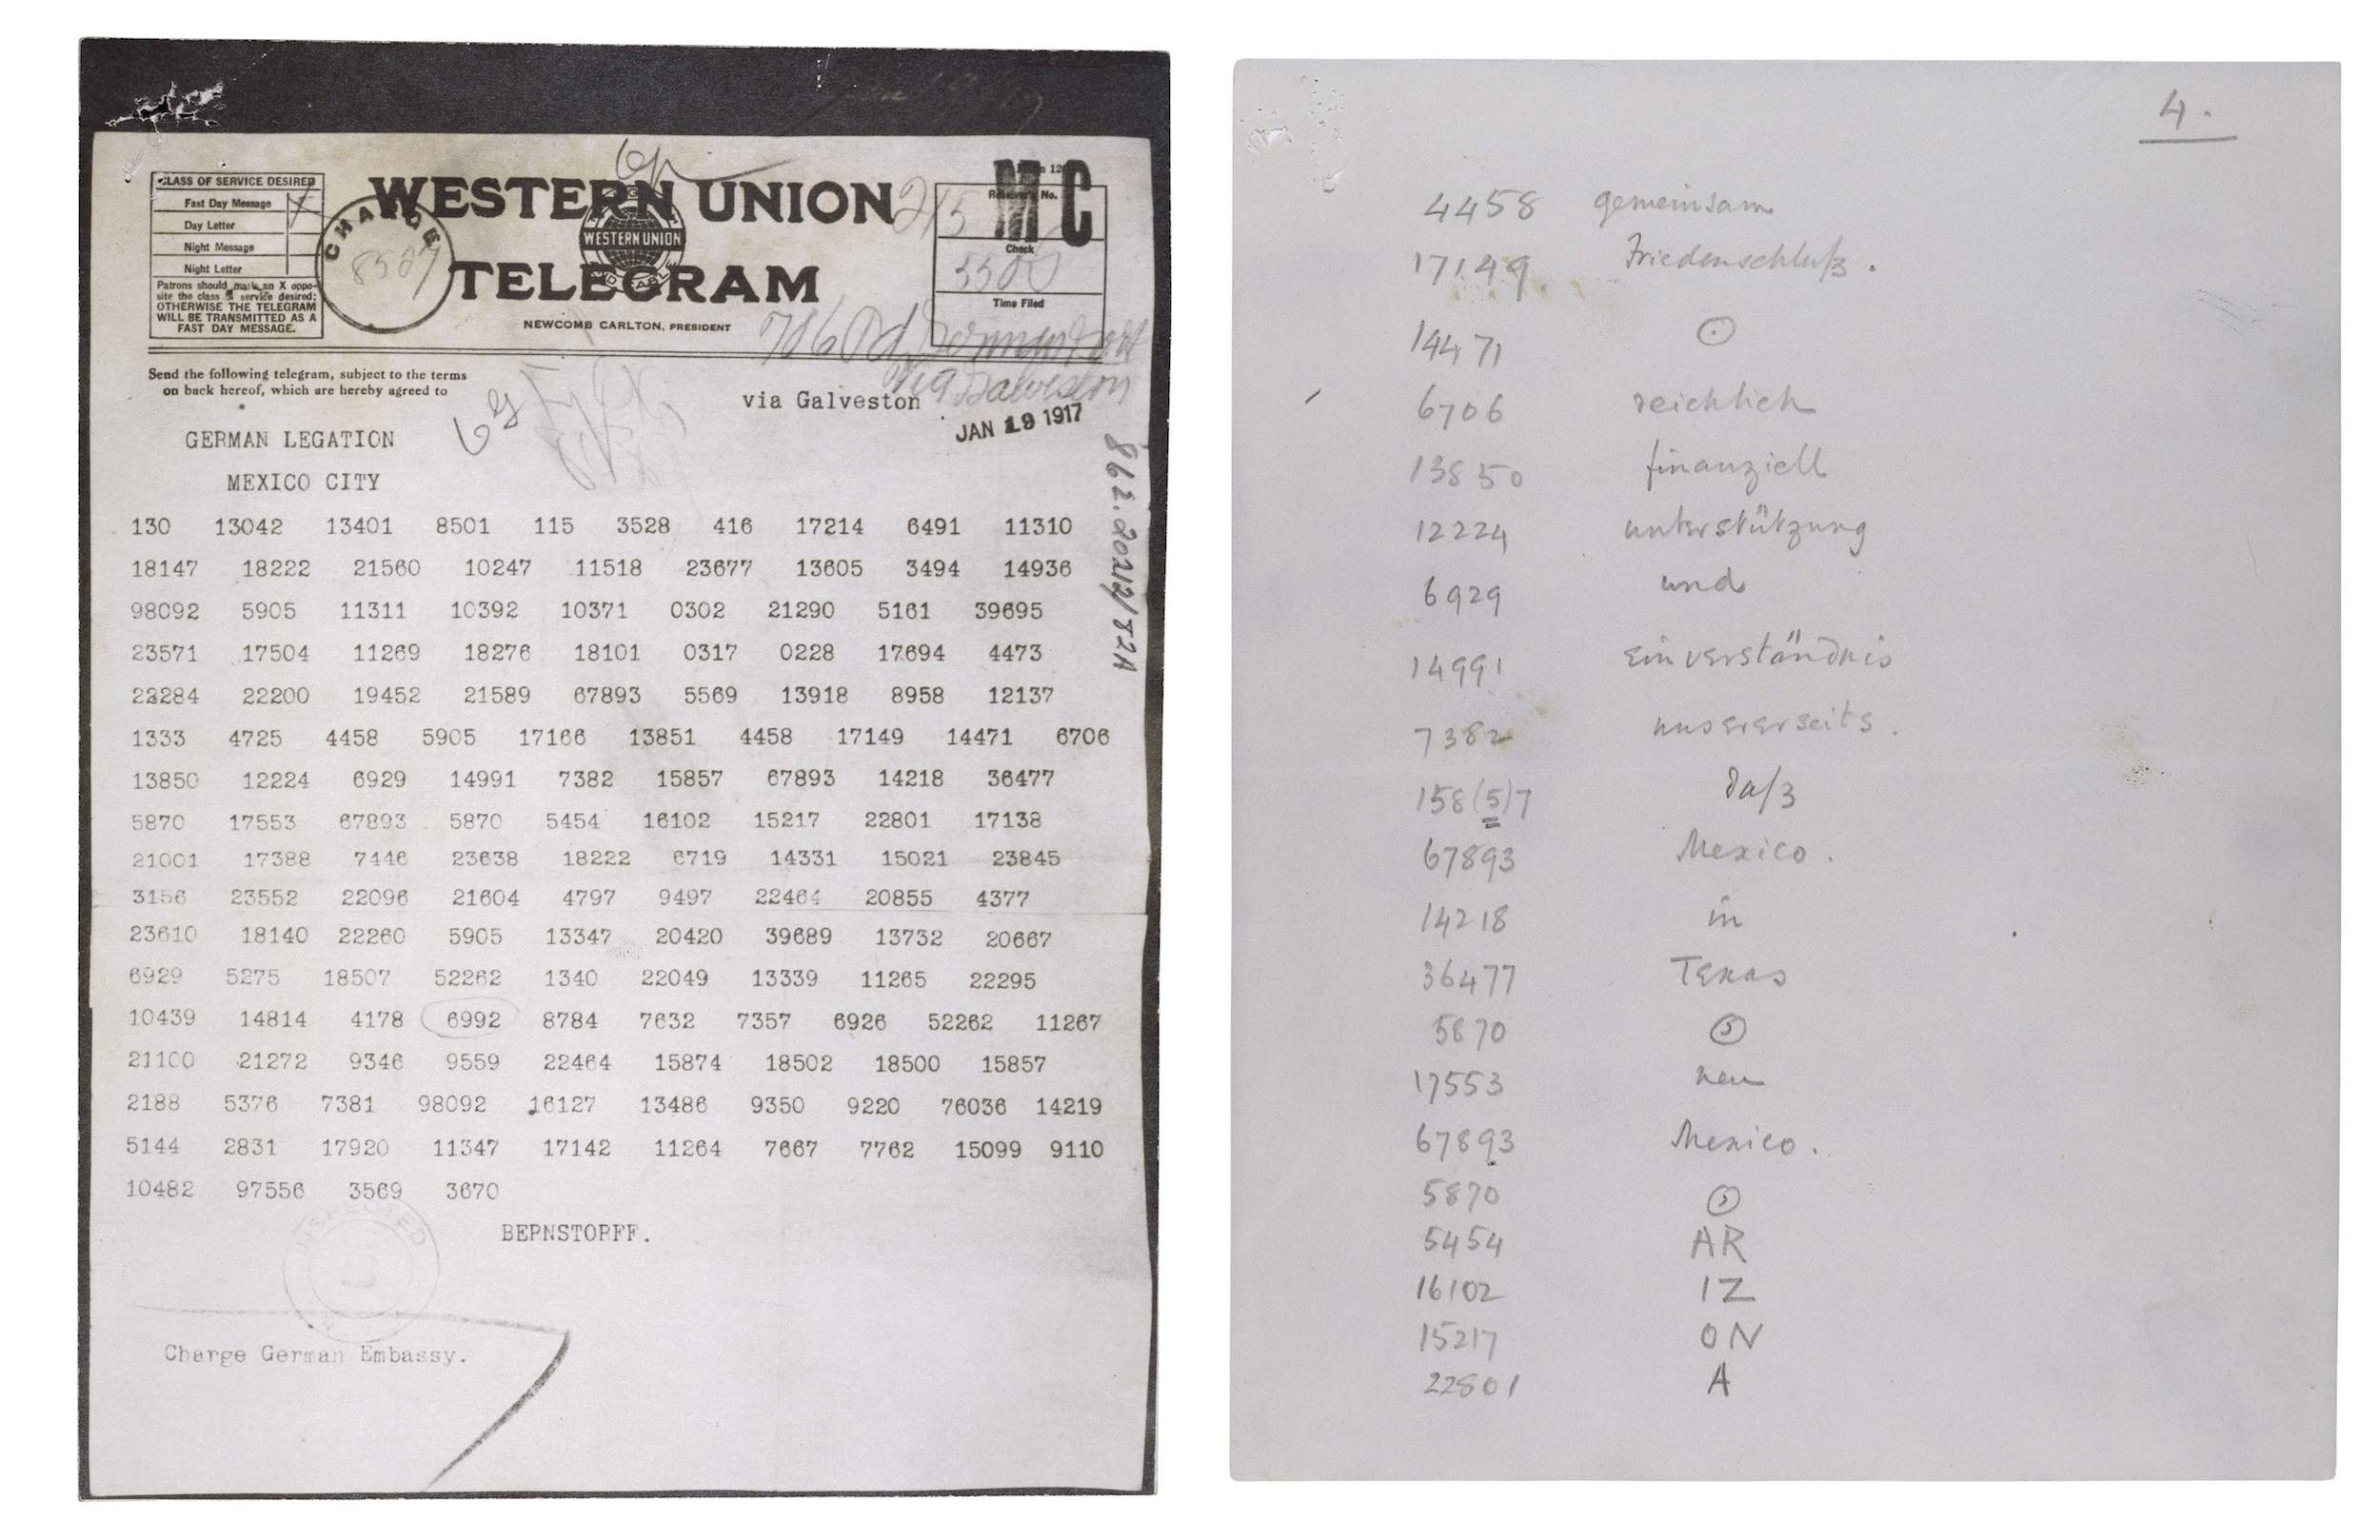 CLASS OF SERVICE DESIRED
Fast Day Message X
Day Letter
Night Message
Night Letter
Patrons should mark an X oppo-
site the class of service desired:
OTHERWISE THE TELEGRAM
WILL BE TRANSMITTED AS A
FAST DAY MESSAGE.
CHARGE
WESTERN UNION
WESTERN UNION
TELEGRAM
NEWCOMB CARLTON, PRESIDENT
MC
Receiver's No.
Check
Time Filed
Send the following telegram, subject to the terms
on back hereof, which are hereby agreed to
via Galveston
via Galveston
JAN 19 1917
862.20212/82A
GERMAN LEGATION
MEXICO CITY
130 13042 13401 8501 115 3528 416 17214 6491 11310
18147 18222 21560 10247 11518 23677 13605 3494 14936
98092 5905 11311 10392 10371 0302 21290 5161 39695
23571 17504 11269 18276 18101 0317 0228 17694 4473
22284 22200 19452 21589 67893 5569 13918 8958 12137
1333 4725 4458 5905 17166 13851 4458 17149 14471 6706
13850 12224 6929 14991 7382 15857 67893 14218 36477
5870 17553 67893 5870 5454 16102 15217 22801 17138
21001 17388 7446 23638 18222 6719 14331 15021 23845
3156 23552 22096 21604 4797 9497 22464 20855 4377
23610 18140 22260 5905 13347 20420 39689 13732 20667
6929 5275 18507 52262 1340 22049 13339 11265 22295
10439 14814 4178 6992 8784 7632 7357 6926 52262 11267
21100 21272 9346 9559 22464 15874 18502 18500 15857
2188 5376 7381 98092 16127 13486 9350 9220 76036 14219
5144 2831 17920 11347 17142 11264 7667 7762 15099 9110
10482 97556 3569 3670
BERNSTORFF.
INSPECTED
Charge German Embassy.
4.
4458 gemeinsam
17149. Friedenschluß.
14471 ⊙
6706 reichlich
13850 finanziell
12224 unterstützung
6929 und
14991 Einverständnis
7382 unsererseits.
158(5)7 daß
67893 Mexico.
14218 in
36477 Texas
5870 (,)
17553 neu
67893 Mexico.
5870 (,)
5454 AR
16102 IZ
15217 ON
22801 A